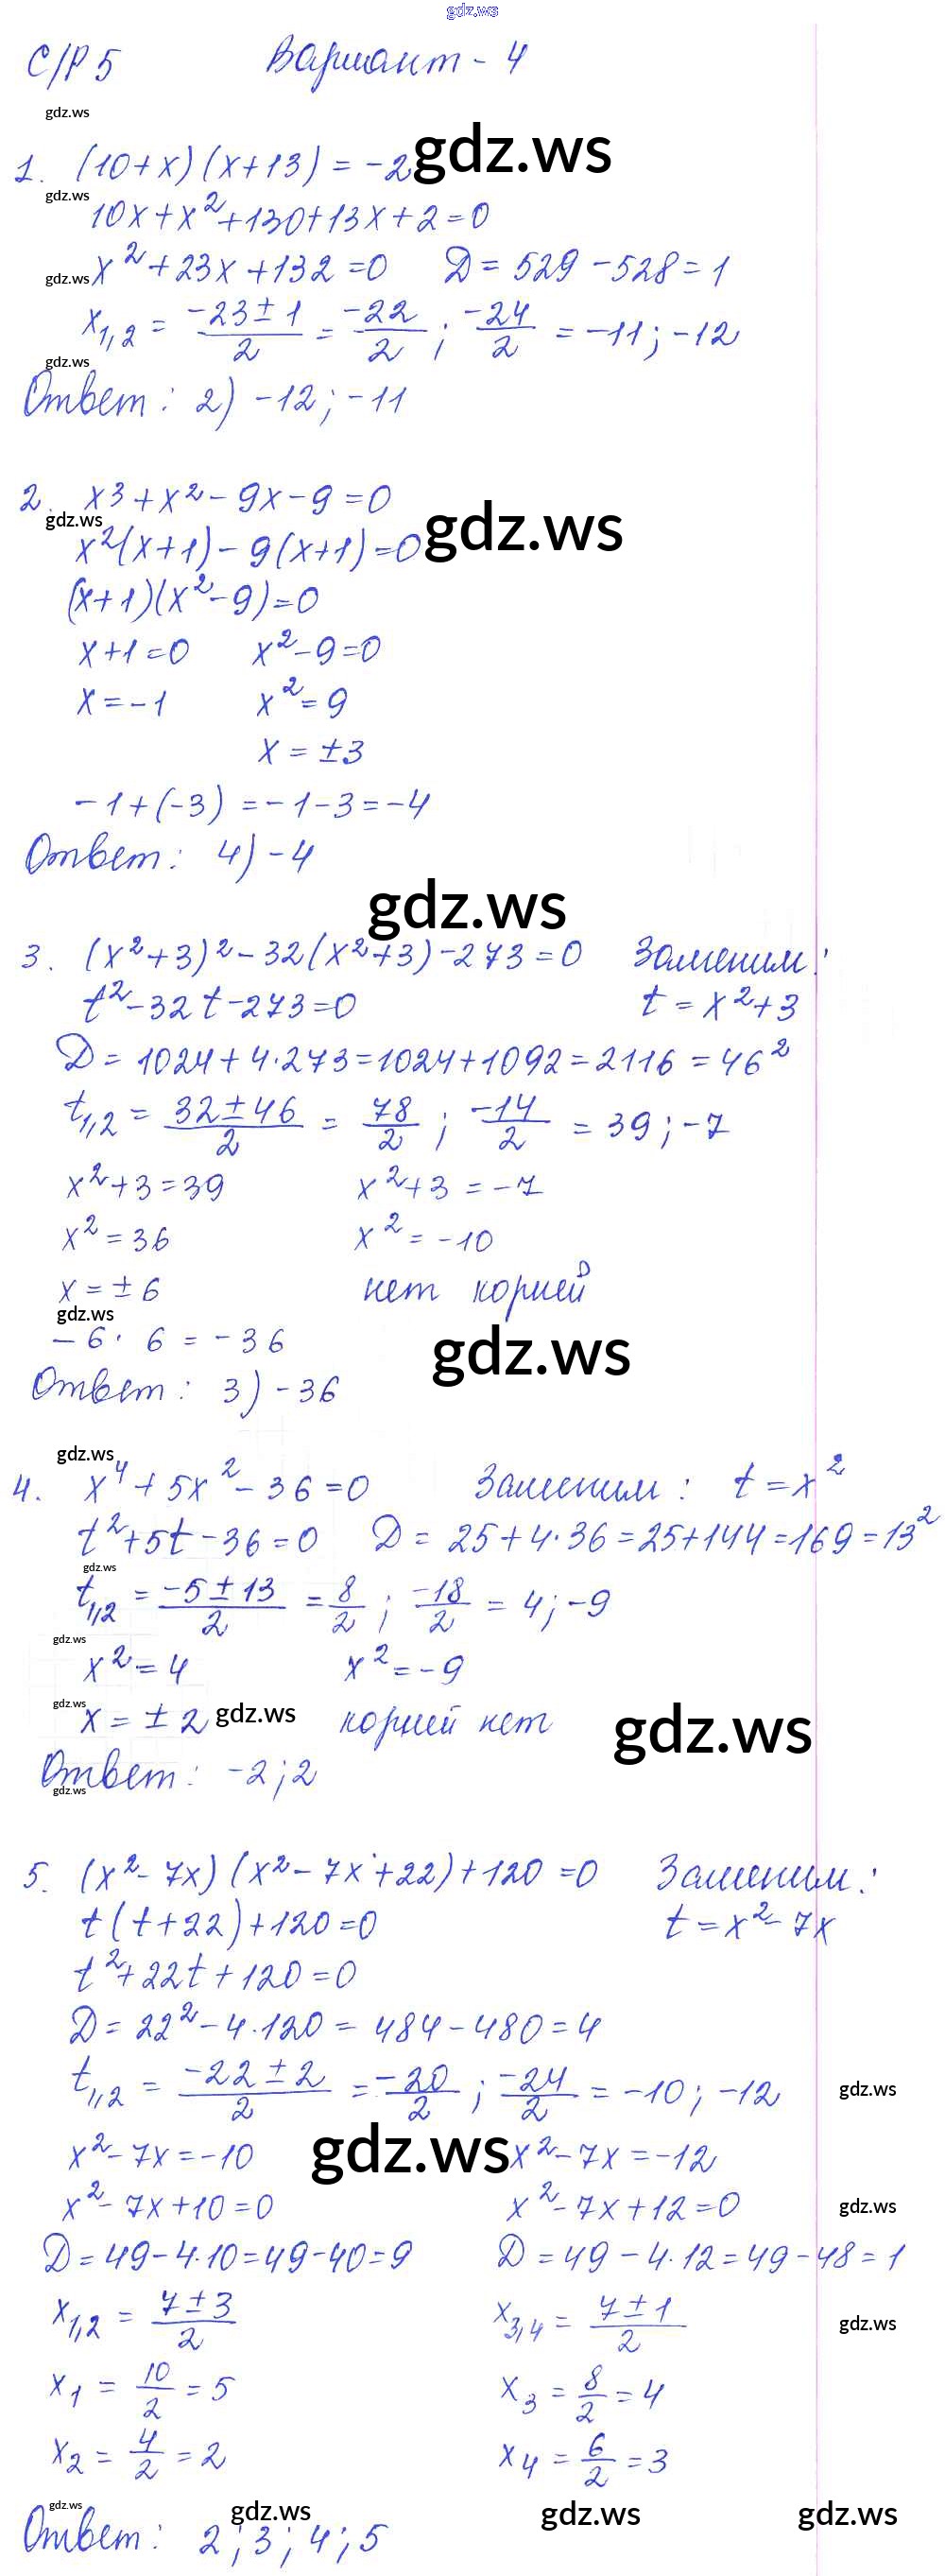 gdz.ws
С/Р 5 Вариант - 4
gdz.ws
1. (10+x)(x+13) = -2 gdz.ws
gdz.ws
10x+x²+130+13x+2=0
gdz.ws x²+23x+132=0 D = 529-528=1
x₁,₂ = (-23±1)/2 = -22/2 ; -24/2 = -11; -12
gdz.ws
Ответ: 2) -12; -11
2. x³+x²-9x-9=0
gdz.ws gdz.ws
x²(x+1)-9(x+1)=0
(x+1)(x²-9)=0
x+1=0 x²-9=0
x=-1 x²=9
x=±3
-1+(-3) = -1-3=-4
Ответ: 4) -4
gdz.ws
3. (x²+3)²-32(x²+3)-273=0 Заменим:
t²-32t-273=0 t=x²+3
D = 1024+4·273=1024+1092=2116=46²
t₁,₂ = (32±46)/2 = 78/2 ; -14/2 = 39; -7
x²+3=39 x²+3=-7
x²=36 x²=-10
x=±6 нет корней
gdz.ws
-6·6=-36 gdz.ws
Ответ: 3) -36
gdz.ws
4. x⁴+5x²-36=0 Заменим: t=x²
t²+5t-36=0 D = 25+4·36=25+144=169=13²
gdz.ws
t₁,₂ = (-5±13)/2 = 8/2 ; -18/2 = 4; -9
gdz.ws
x²=4 x²=-9
gdz.ws x=±2 gdz.ws корней нет gdz.ws
Ответ: -2; 2
gdz.ws
5. (x²-7x)(x²-7x+22)+120=0 Заменим:
t(t+22)+120=0 t=x²-7x
t²+22t+120=0
D=22²-4·120=484-480=4
t₁,₂ = (-22±2)/2 = -20/2 ; -24/2 = -10; -12 gdz.ws
x²-7x=-10 gdz.ws x²-7x=-12
x²-7x+10=0 x²-7x+12=0 gdz.ws
D=49-4·10=49-40=9 D=49-4·12=49-48=1
x₁,₂ = (7±3)/2 x₃,₄ = (7±1)/2 gdz.ws
x₁ = 10/2 = 5 x₃ = 8/2 = 4
x₂ = 4/2 = 2 x₄ = 6/2 = 3
gdz.ws gdz.ws gdz.ws gdz.ws
Ответ: 2; 3; 4; 5